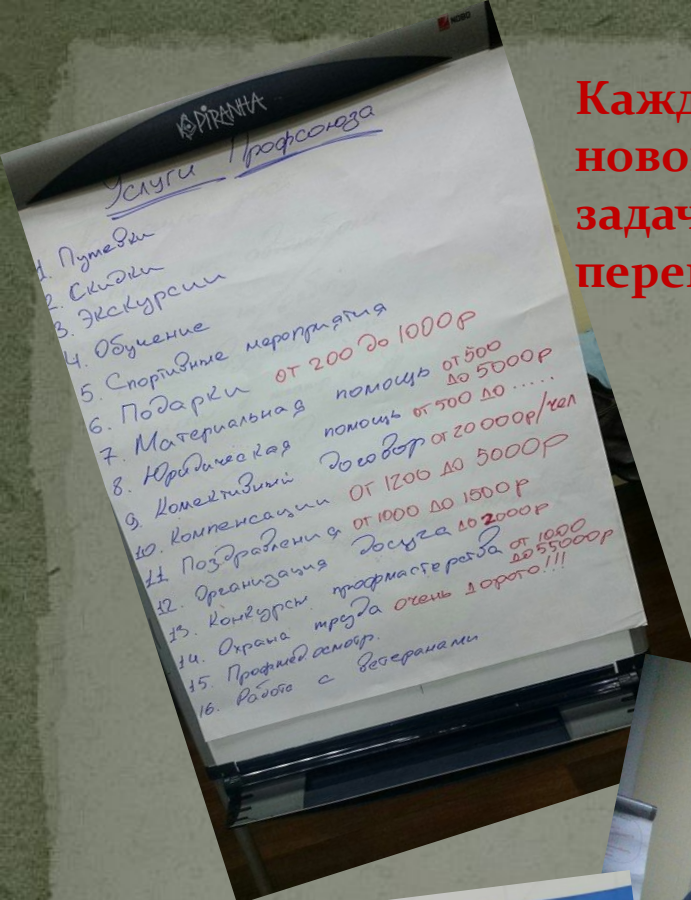 NOBO
PIRANHA
Услуги Профсоюза
1. Путевки
2. Скидки
3. Экскурсии
4. Обучение
5. Спортивные мероприятия
6. Подарки от 200 до 1000р
7. Материальная помощь от 500 до 5000р
8. Юридическая помощь от 500 до .....
9. Колективный договор от 20 000р/чел
10. Компенсации от 1200 до 5000р
11. Поздравления от 1000 до 1500р
12. Организация досуга до 2000р
13. Конкурсы профмастерства от 1000 до 55000р
14. Охрана труда очень дорого!!!
15. Профмедосмотр.
16. Работа с ветеранами
Кажд
ново
задач